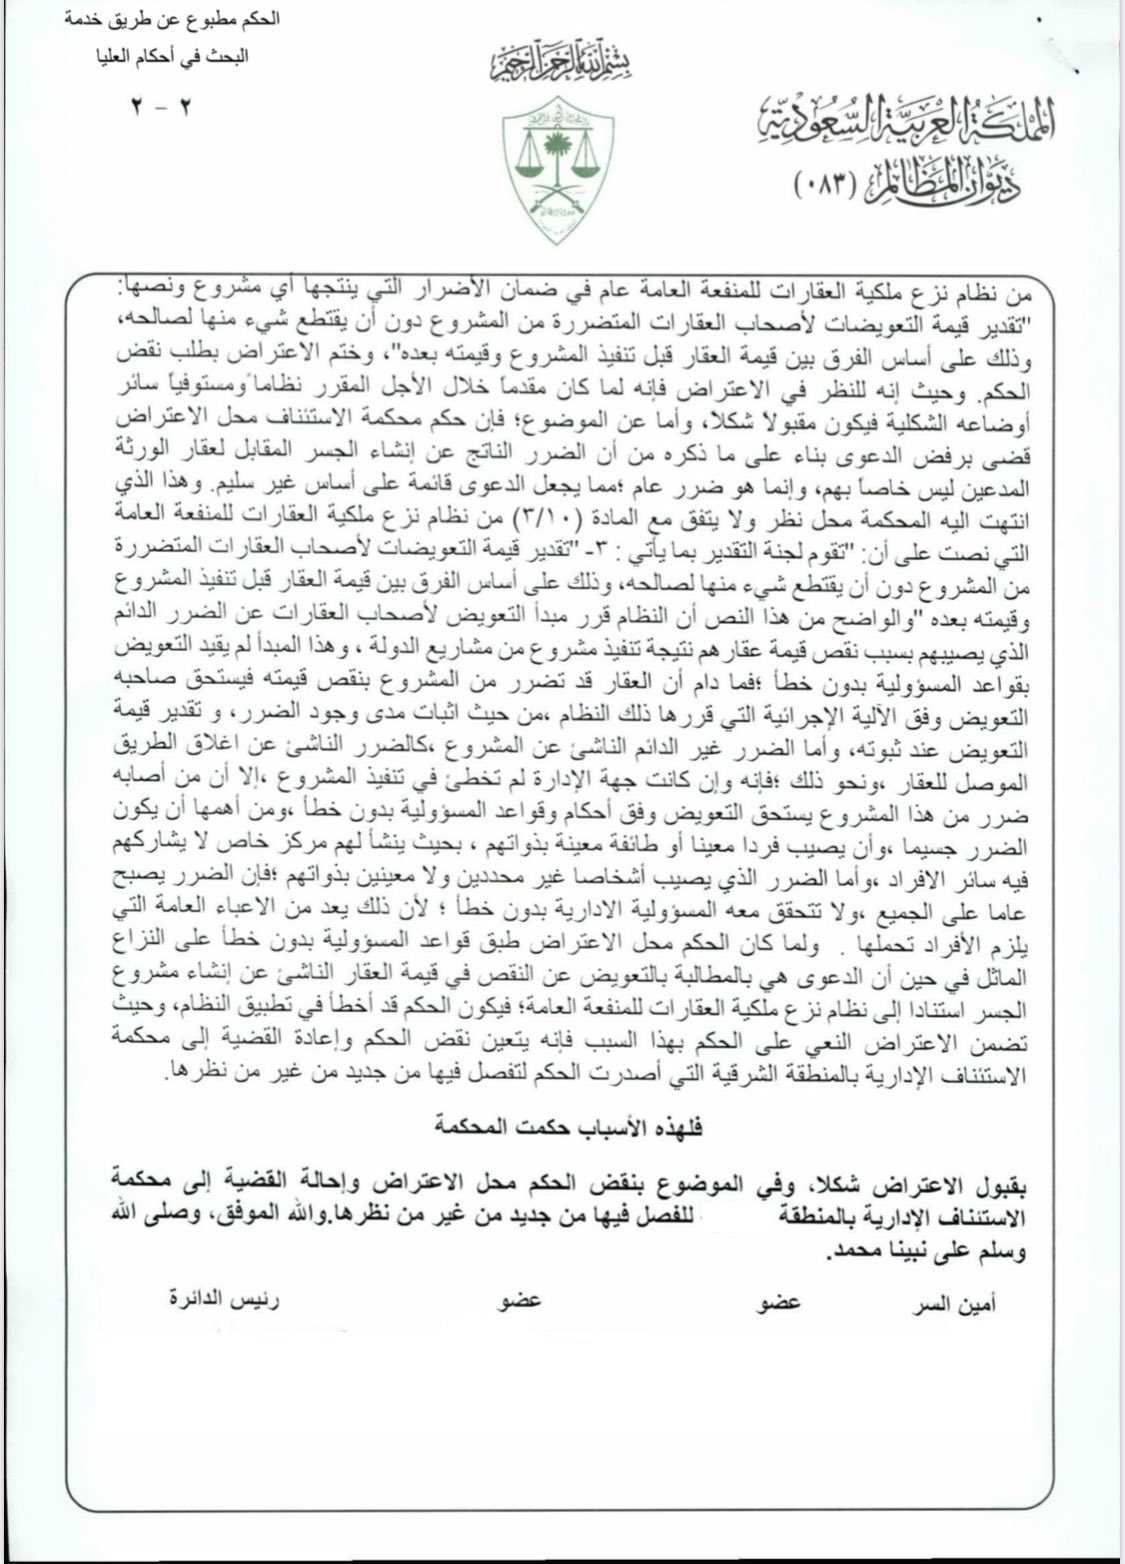 الحكم مطبوع عن طريق خدمة
البحث في أحكام العليا
٢ - ٢
بسم الله الرحمن الرحيم
المملكة العربية السعودية
ديوان المظالم (٠٨٣)
من نظام نزع ملكية العقارات للمنفعة العامة عام في ضمان الأضرار التي ينتجها أي مشروع ونصها:
"تقدير قيمة التعويضات لأصحاب العقارات المتضررة من المشروع دون أن يقتطع شيء منها لصالحه،
وذلك على أساس الفرق بين قيمة العقار قبل تنفيذ المشروع وقيمته بعده"، وختم الاعتراض بطلب نقض
الحكم. وحيث إنه للنظر في الاعتراض فإنه لما كان مقدماً خلال الأجل المقرر نظاماً ومستوفياً سائر
أوضاعه الشكلية فيكون مقبولاً شكلا، وأما عن الموضوع؛ فإن حكم محكمة الاستئناف محل الاعتراض
قضى برفض الدعوى بناء على ما ذكره من أن الضرر الناتج عن إنشاء الجسر المقابل لعقار الورثة
المدعين ليس خاصاً بهم، وإنما هو ضرر عام ؛مما يجعل الدعوى قائمة على أساس غير سليم. وهذا الذي
انتهت اليه المحكمة محل نظر ولا يتفق مع المادة (٣/١٠) من نظام نزع ملكية العقارات للمنفعة العامة
التي نصت على أن: "تقوم لجنة التقدير بما يأتي : ٣ـ "تقدير قيمة التعويضات لأصحاب العقارات المتضررة
من المشروع دون أن يقتطع شيء منها لصالحه، وذلك على أساس الفرق بين قيمة العقار قبل تنفيذ المشروع
وقيمته بعده "والواضح من هذا النص أن النظام قرر مبدأ التعويض لأصحاب العقارات عن الضرر الدائم
الذي يصيبهم بسبب نقص قيمة عقارهم نتيجة تنفيذ مشروع من مشاريع الدولة ، وهذا المبدأ لم يقيد التعويض
بقواعد المسؤولية بدون خطأ ؛فما دام أن العقار قد تضرر من المشروع بنقص قيمته فيستحق صاحبه
التعويض وفق الآلية الإجرائية التي قررها ذلك النظام ،من حيث اثبات مدى وجود الضرر، و تقدير قيمة
التعويض عند ثبوته، وأما الضرر غير الدائم الناشئ عن المشروع ،كالضرر الناشئ عن اغلاق الطريق
الموصل للعقار ،ونحو ذلك ؛فإنه وإن كانت جهة الإدارة لم تخطئ في تنفيذ المشروع ،إلا أن من أصابه
ضرر من هذا المشروع يستحق التعويض وفق أحكام وقواعد المسؤولية بدون خطأ ،ومن أهمها أن يكون
الضرر جسيما ،وأن يصيب فردا معينا أو طائفة معينة بذواتهم ، بحيث ينشأ لهم مركز خاص لا يشاركهم
فيه سائر الافراد ،وأما الضرر الذي يصيب أشخاصا غير محددين ولا معينين بذواتهم ؛فإن الضرر يصبح
عاما على الجميع ،ولا تتحقق معه المسؤولية الادارية بدون خطأ ؛ لأن ذلك يعد من الاعباء العامة التي
يلزم الأفراد تحملها . ولما كان الحكم محل الاعتراض طبق قواعد المسؤولية بدون خطأ على النزاع
الماثل في حين أن الدعوى هي بالمطالبة بالتعويض عن النقص في قيمة العقار الناشئ عن إنشاء مشروع
الجسر استنادا إلى نظام نزع ملكية العقارات للمنفعة العامة؛ فيكون الحكم قد أخطأ في تطبيق النظام، وحيث
تضمن الاعتراض النعي على الحكم بهذا السبب فإنه يتعين نقض الحكم وإعادة القضية إلى محكمة
الاستئناف الإدارية بالمنطقة الشرقية التي أصدرت الحكم لتفصل فيها من جديد من غير من نظرها.
فلهذه الأسباب حكمت المحكمة
بقبول الاعتراض شكلا، وفي الموضوع بنقض الحكم محل الاعتراض وإحالة القضية إلى محكمة
الاستئناف الإدارية بالمنطقة للفصل فيها من جديد من غير من نظرها.والله الموفق، وصلى الله
وسلم على نبينا محمد.
أمين السر عضو عضو رئيس الدائرة